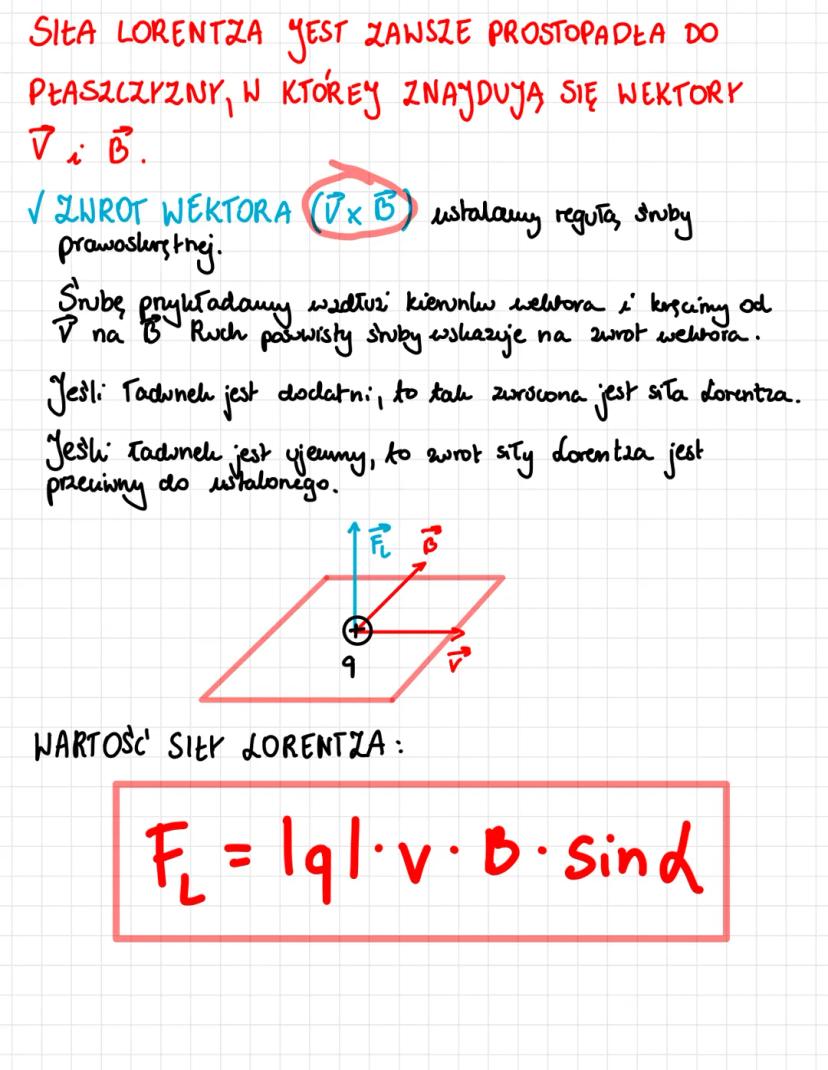 SIŁA LORENTZA JEST ZAWSZE PROSTOPADŁA DO
PŁASZCZYZNY, W KTÓREJ ZNAJDUJĄ SIĘ WEKTORY
V⃗ i B⃗.
√ ZWROT WEKTORA (V⃗ x B⃗) ustalamy regułą śruby
prawoskrętnej.
Śrubę przykładamy wzdłuż kierunku wektora i kręcimy od
V⃗ na B⃗ Ruch posuwisty śruby wskazuje na zwrot wektora.
Jeśli ładunek jest dodatni, to tak zwrócona jest siła Lorentza.
Jeśli ładunek jest ujemny, to zwrot siły Lorentza jest
przeciwny do ustalonego.
F⃗L B⃗
+
q V⃗
WARTOŚĆ SIŁY LORENTZA:
FL = |q| · v · B · sin α